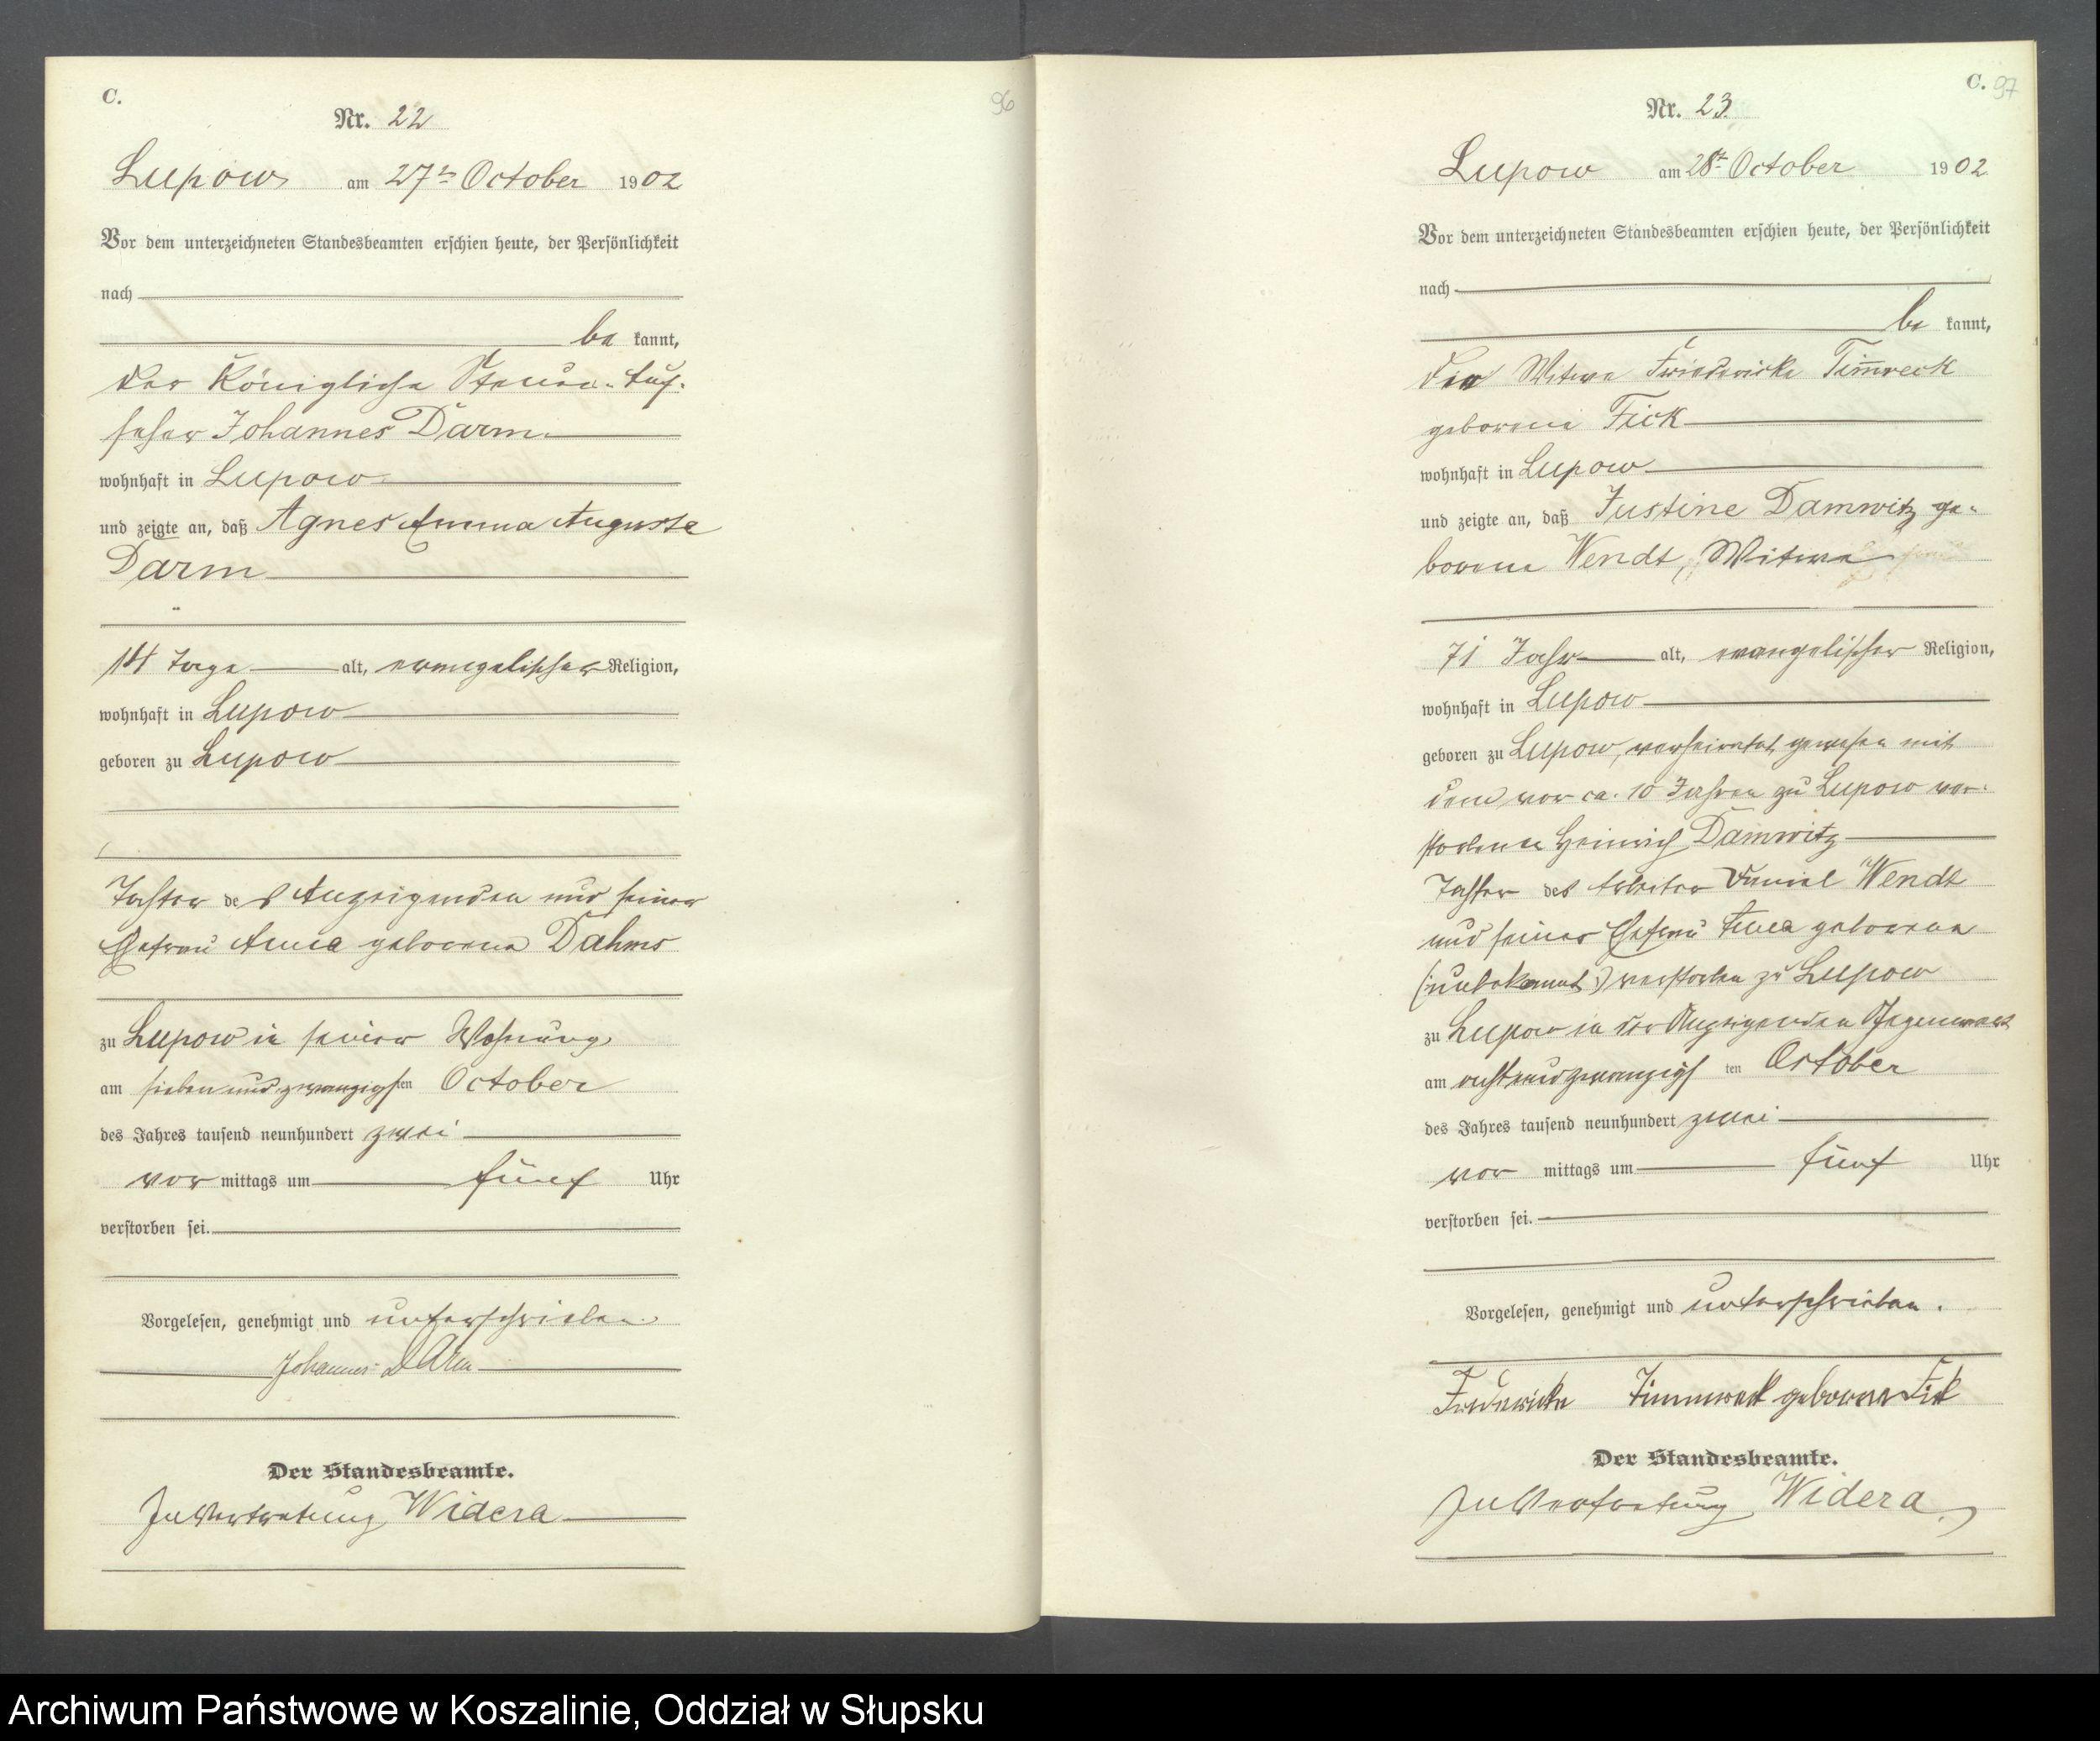 C.
Nr. 22
96
Lupow am 27ten October 1902
Vor dem unterzeichneten Standesbeamten erschien heute, der Persönlichkeit
nach
be kannt,
der Königliche Steuer-Auf-
seher Johannes Darm
wohnhaft in Lupow
und zeigte an, daß Agnes Emma Auguste
Darm
14 Tage alt, evangelischer Religion,
wohnhaft in Lupow
geboren zu Lupow
Tochter des Anzeigenden und seiner
Ehefrau Anna geborene Dahms
zu Lupow in seiner Wohnung
am sieben und zwanzigsten October
des Jahres tausend neunhundert zwei
vor mittags um fünf Uhr
verstorben sei.
Vorgelesen, genehmigt und unterschrieben
Johannes Darm
Der Standesbeamte.
In Vertretung Widera
C. 97
Nr. 23.
Lupow am 28ten October 1902.
Vor dem unterzeichneten Standesbeamten erschien heute, der Persönlichkeit
nach
be kannt,
die Witwe Friedericke Tim̅reck
geborene Fick
wohnhaft in Lupow
und zeigte an, daß Justine Damwitz ge-
borene Wendt, Witwe
71 Jahr alt, evangelischer Religion,
wohnhaft in Lupow
geboren zu Lupow, verheiratet gewesen mit
dem vor ca. 10 Jahren zu Lupow ver-
storbenen Heinrich Damwitz
Tochter des Arbeiter Daniel Wendt
und seiner Ehefrau Anna geborene
(:unbekannt:) verstorben zu Lupow
zu Lupow in der Anzeigenden Gegenwart
am achtundzwanzigs ten October
des Jahres tausend neunhundert zwei
vor mittags um fünf Uhr
verstorben sei.
Vorgelesen, genehmigt und unterschrieben.
Friedericke Timmreck geborene Fick
Der Standesbeamte.
In Vertretung Widera
Archiwum Państwowe w Koszalinie, Oddział w Słupsku